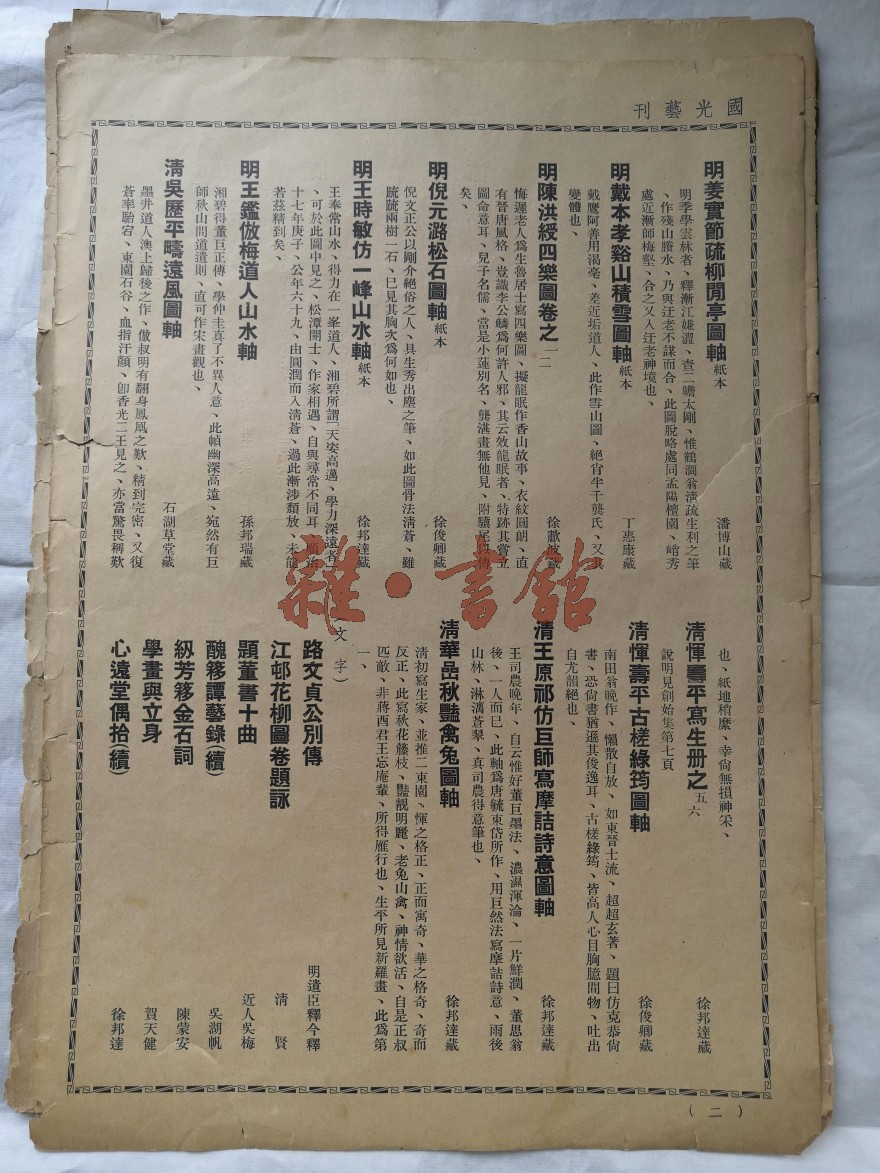 國光藝刊
明姜實節疏柳閒亭圖軸 紙本 潘博山藏
明季學雲林者、釋漸江嫌澀、查二瞻太剛、惟鶴澗翁清疏生利之筆
、作殘山賸水、乃與迂老不謀而合、此圖脫略處同孟陽檀園、峭秀
處近漸師梅壑、合之又入迂老神境也、
明戴本孝谿山積雪圖軸 紙本 丁惠康藏
戴鷹阿善用渴毫、差近垢道人、此作雪山圖、絕肖半千龔氏、又其
變體也、
明陳洪綬四樂圖卷之一二 徐歗波藏
悔遲老人爲生魯居士寫四樂圖、擬龍眠作香山故事、衣紋圓朗、直
有晉唐風格、豈識李公麟爲何許人邪、其云效龍眠者、特跡其嘗立
圖命意耳、兒子名儒、當是小蓮別名、龔湛畫無他見、附驥尾以傳
矣、
明倪元潞松石圖軸 紙本 徐俊卿藏
倪文正公以剛介絕俗之人、具生秀出塵之筆、如此圖骨法清蒼、雖
疏疏兩樹一石、已見其胸次爲何如也、
明王時敏仿一峰山水軸 紙本 徐邦達藏
王奉常山水、得力在一峯道人、湘碧所謂「天姿高邁、學力深遠者」
、可於此圖中見之、松潭開士、作家相遇、自與尋常不同耳、順治
十七年庚子、公年六十九、由圓潤而入清蒼、過此漸涉頹放、未能
若茲精到矣、
明王鑑倣梅道人山水軸 孫邦瑞藏
湘碧得董巨正傳、學仲圭真了不異人意、此幀幽深高遠、宛然有巨
師秋山問道遺則、直可作宋畫觀也、
清吳歷平疇遠風圖軸 石湖草堂藏
墨井道人澳上歸後之作、倣叔明有翻身鳳凰之歎、精到完密、又復
蒼率駘宕、東園石谷、血指汗顏、卽香光二王見之、亦當驚畏稱歎
也、紙地稍縻、幸尙無損神采、
清惲壽平寫生册之五六 徐邦達藏
說明見創始集第七頁
清惲壽平古槎綠筠圖軸 徐俊卿藏
南田翁晚作、懶散自放、如東晉士流、超超玄著、題曰仿克恭尙
書、恐尙書猶遜其俊逸耳、古槎綠筠、皆高人心目胸臆間物、吐出
自尤韻絕也、
清王原祁仿巨師寫摩詰詩意圖軸 徐邦達藏
王司農晚年、自云惟好董巨墨法、濃濕渾淪、一片鮮潤、董思翁
後、一人而已、此軸爲唐毓東岱所作、用巨然法寫摩詰詩意、雨後
山林、淋漓蒼翠、真司農得意筆也、
清華嵒秋豔禽兔圖軸 徐邦達藏
清初寫生家、並推二東園、惲之格正、正而寓奇、華之格奇、奇而
反正、此寫秋花籐枝、豔靚明麗、老兔山禽、神情欲活、自是正叔
匹敵、非蔣酉君王忘庵輩、所得雁行也、生平所見新羅畫、此爲第
一、
文字）
路文貞公別傳 明遺臣釋今釋
江邨花柳圖卷題詠 清賢
題董書十曲 近人吳梅
醜簃譚藝錄（續） 吳湖帆
紉芳簃金石詞 陳蒙安
學畫與立身 賀天健
心遠堂偶拾（續） 徐邦達
（二）
雜·書館